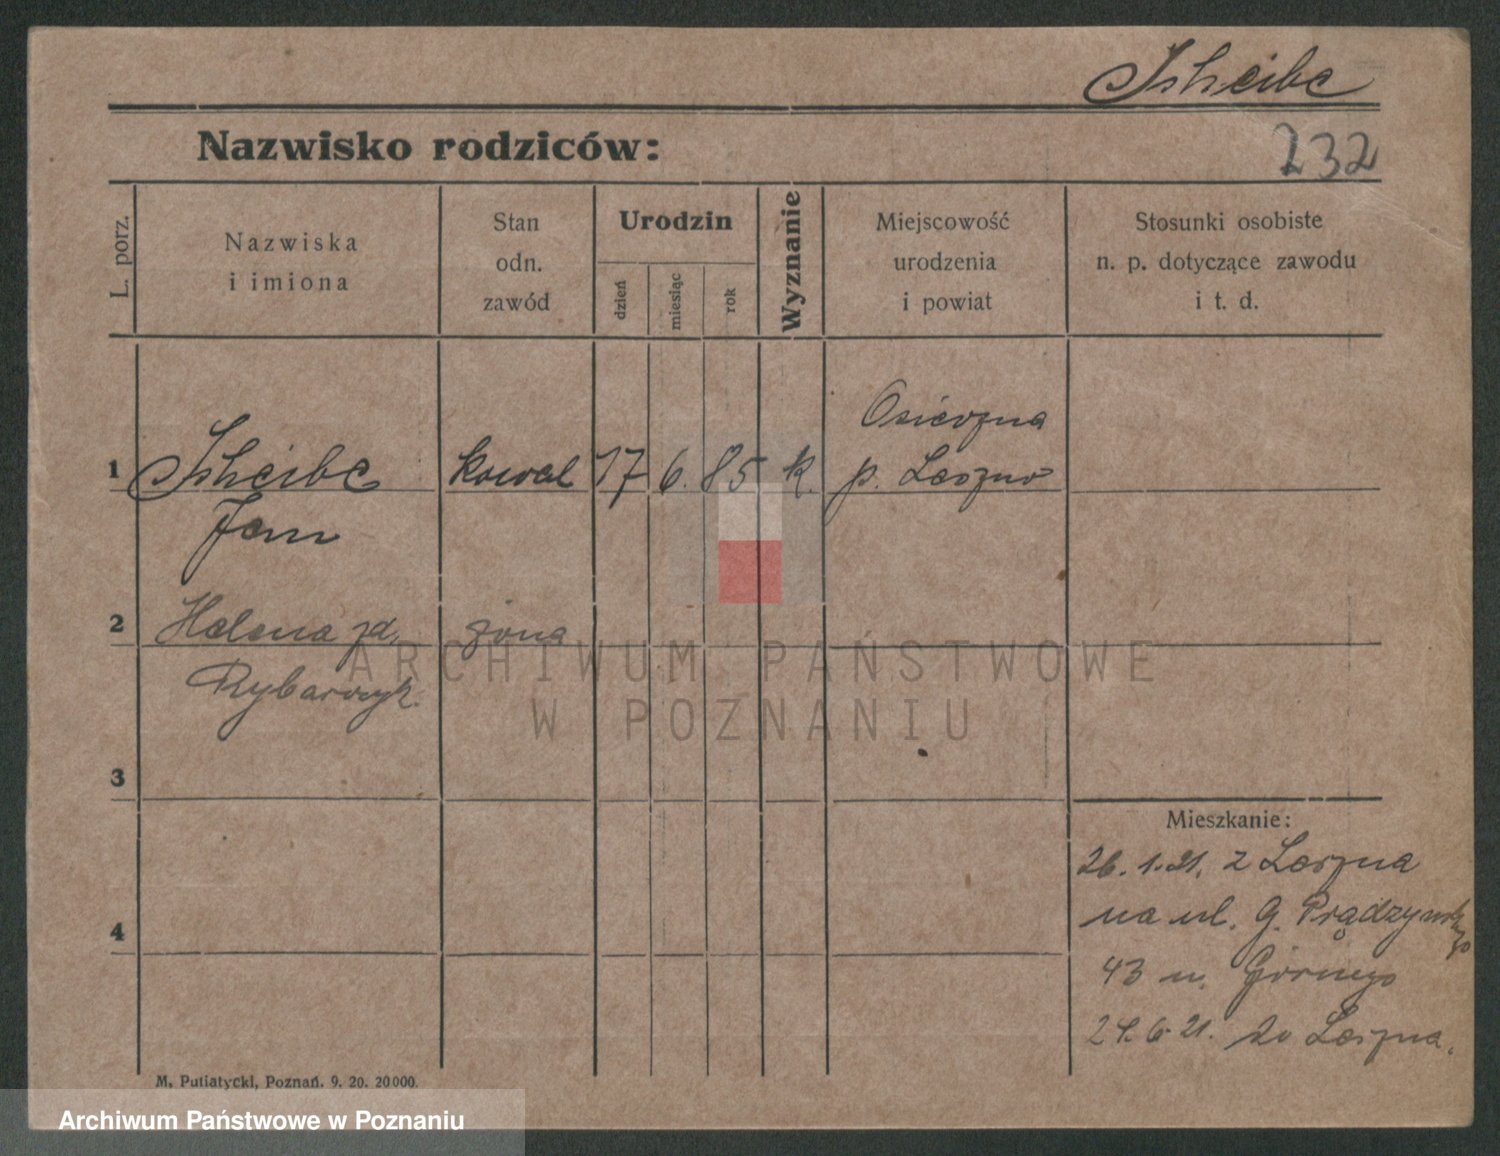 Ischeibe
232
Nazwisko rodziców:
L. porz.
Nazwiska
i imiona
Stan
odn.
zawód
Urodzin
dzień
miesiąc
rok
Wyznanie
Miejscowość
urodzenia
i powiat
Stosunki osobiste
n. p. dotyczące zawodu
i t. d.
Osieczna
1 kowal 17 6. 85 k. p. Leszno
Jan
2 Helena zd. żona
Rybarczyk.
3
Mieszkanie:
26. 1. 21. z Leszna
na ul. G. Prądzyńskiego
4
43 u. Górnego
24. 6. 21. do Leszna.
M. Putiatycki, Poznań. 9. 20. 20000.
ARCHIWUM PAŃSTWOWE
W POZNANIU
Archiwum Państwowe w Poznaniu